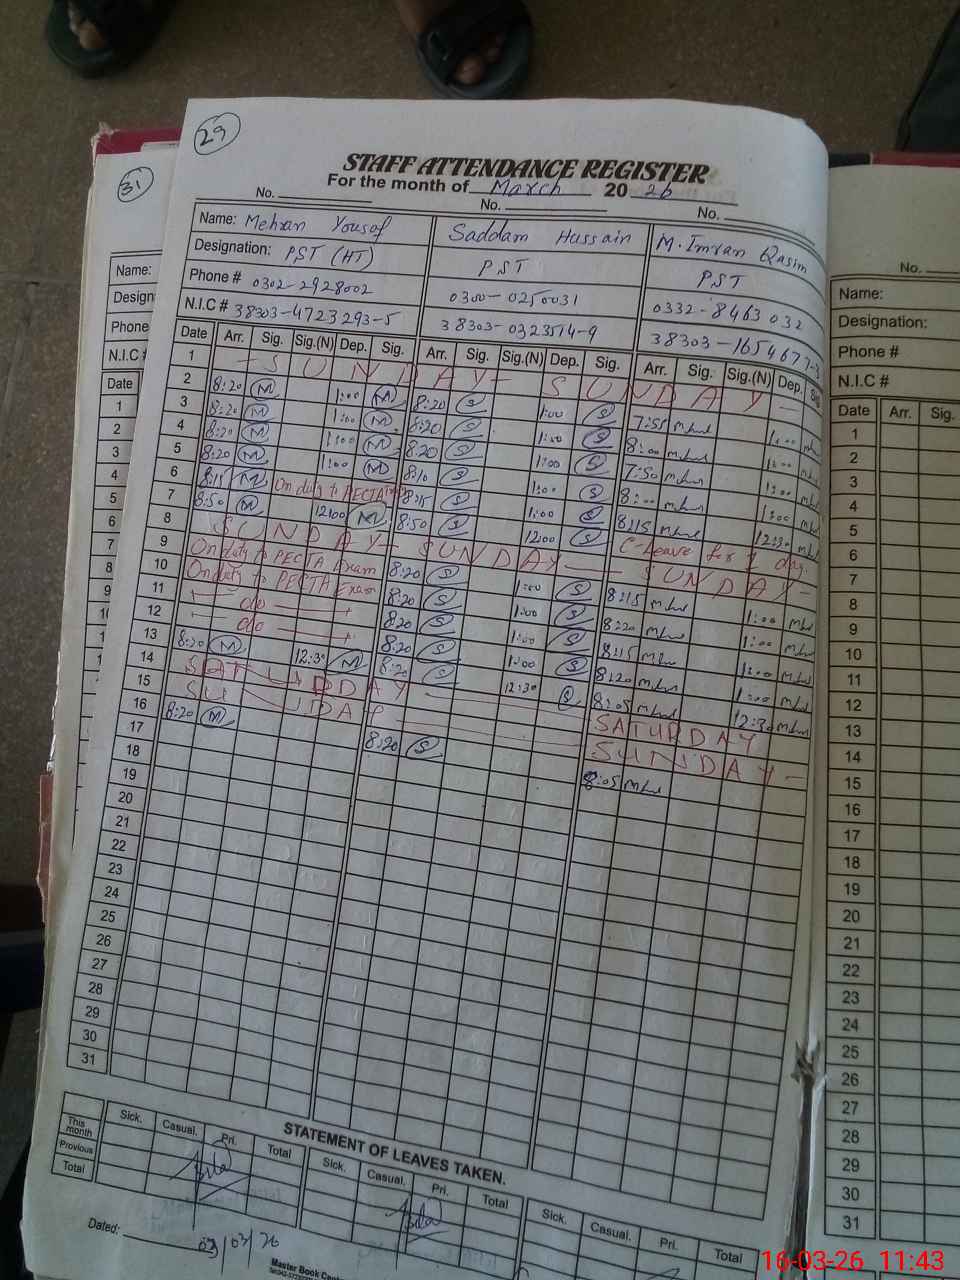 29
31
STAFF ATTENDANCE REGISTER
For the month of March 20 26
No. No. No.
Name: Mehran Yousaf Saddam Hussain M. Imran Qasim
Designation: PST (HT) PST PST
Phone # 0302-2928002 0300-0250031 0332-8463032
N.I.C # 38303-4723293-5 38303-0323514-9 38303-1654677-3
Date Arr. Sig. Sig.(N) Dep. Sig. Arr. Sig. Sig.(N) Dep. Sig. Arr. Sig. Sig.(N) Dep. Sig
1 - S U N D A Y - S U N D A Y -
2 8:20 M 1:00 M 8:20 S 1:00 S 7:55 1:00
3 8:20 M 1:00 M 8:20 S 1:00 S 8:00 1:00
4 8:20 M 1:00 M 8:20 S 1:00 S 7:50 1:00
5 8:20 M 1:00 M 8:10 S 1:00 S 8:00 1:00
6 8:15 M On duty to PECTA 8:15 S 1:00 S 8:15 12:30
7 8:50 M 12:00 M 8:50 S 12:00 S C-Leave for 1 day.
8 S U N D A Y - S U N D A Y - S U N D A Y -
9 On duty to PECTA Exam 8:20 S 1:00 S 8:15 1:00
10 On duty to PECTA Exam 8:20 S 1:00 S 8:20 1:00
11 do 8:20 S 1:00 S 8:15 1:00
12 do 8:20 S 1:00 S 8:20 1:00
13 8:20 M 12:30 M 8:20 S 12:30 S 8:05 12:30
14 SATURDAY SATURDAY
15 SUNDAY SUNDAY -
16 8:20 M 8:20 S 8:05
17
18
19
20
21
22
23
24
25
26
27
28
29
30
31
STATEMENT OF LEAVES TAKEN.
Sick. Casual. Pri. Total Sick. Casual. Pri. Total Sick. Casual. Pri. Total
This month
Previous
Total
Dated: 03/03/26
Master Book Cent
Name:
Design
Phone
N.I.C #
Date
1
2
3
4
5
6
7
8
9
10
11
12
13
14
15
No.
Name:
Designation:
Phone #
N.I.C #
Date Arr. Sig.
1
2
3
4
5
6
7
8
9
10
11
12
13
14
15
16
17
18
19
20
21
22
23
24
25
26
27
28
29
30
31
16-03-26 11:43